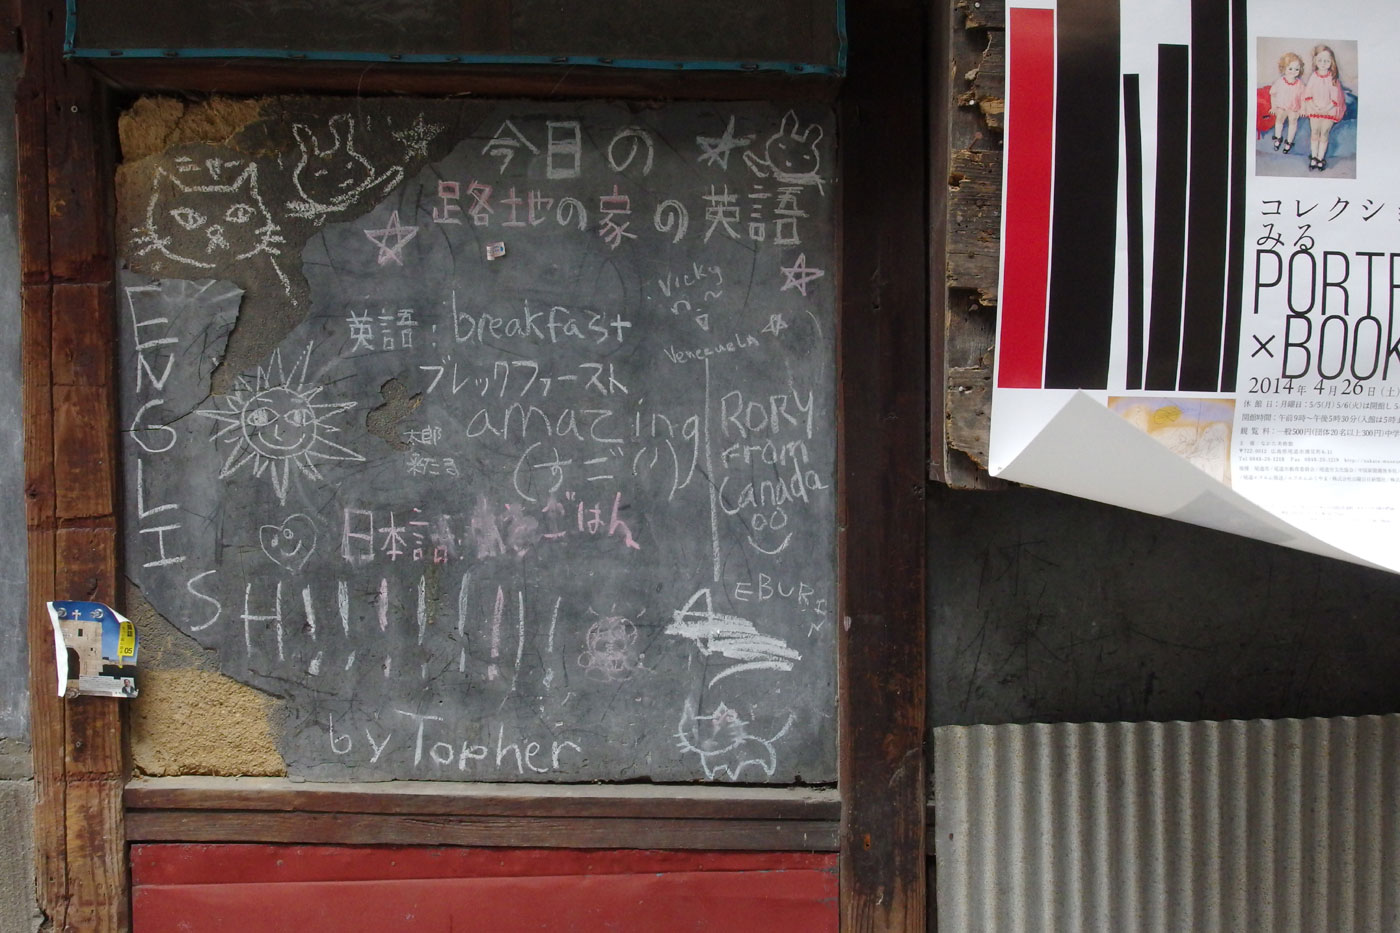 ニャー
今日の
路地の家の英語
Vicky
Venezuela
英語:breakfast
ブレックファースト
amazing
(すごい)
太郎
RORY
from
Canada
日本語: あさごはん
ENGLISH!!!!!!!!
EBURIN
by Topher
05
コレクシ
みる
PORTR
×BOOK
2014年 4月 26日(土)
休館日:月曜日
開館時間:午前9時〜午後5時30分
観覧料:一般500円(団体20名以上300円)中学